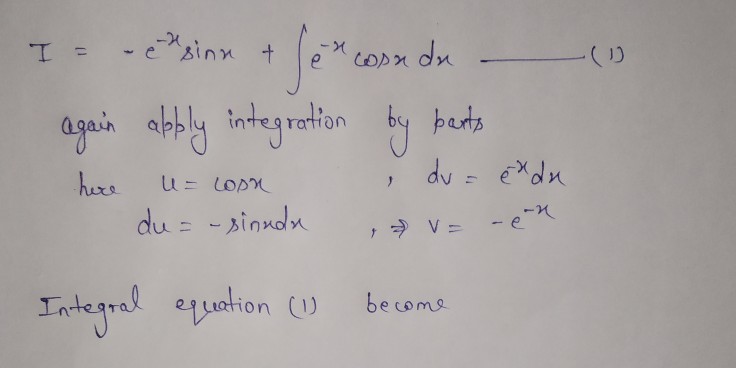 I = - e^{-x} sinx + ∫ e^{-x} cosx dx ——— (1)
again apply integration by parts
here u = cosx , dv = e^{-x} dx
du = - sinxdx , ⇒ v = - e^{-x}
Integral equation (1) become